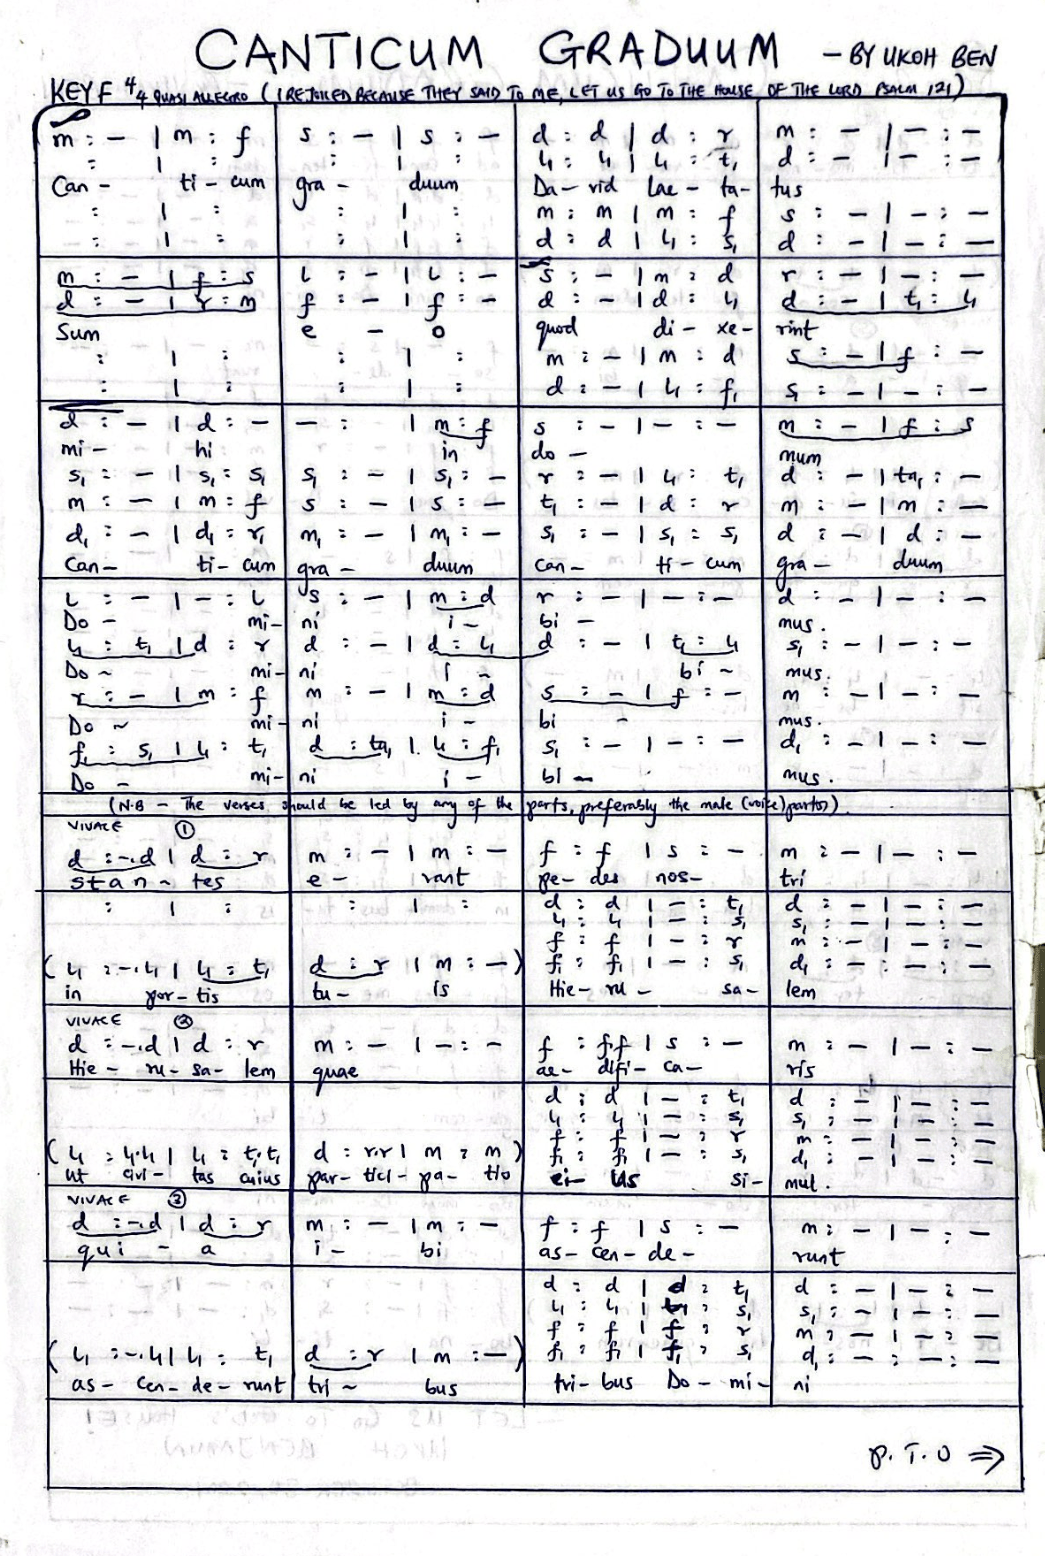 CANTICUM GRADUUM - BY UKOH BEN
KEY F 4/4 QUASI ALLEGRO (I REJOICED BECAUSE THEY SAID TO ME, LET US GO TO THE HOUSE OF THE LORD PSALM 121)
m : - | m : f   s : - | s : -   d : d | d : r   m : - | - : -
: | :   : | :   l₁ : l₁ | l₁ : t₁   d : - | - : -
Can - ti - cum gra - duum Da - vid Lae - ta - tus
: | :   : | :   m : m | m : f   s : - | - : -
: | :   : | :   d : d | l₁ : s₁   d : - | - : -
m : - | f : s   l : - | l : -   s : - | m : d   r : - | - : -
d : - | r : m   f : - | f : -   d : - | d : l₁   d : - | t₁ : l₁
Sum e - o quod di - xe - rint
: | :   : | :   m : - | m : d   s : - | f : -
: | :   : | :   d : - | l₁ : f₁   s₁ : - | - : -
d : - | d : -   - : | m : f   s : - | - : -   m : - | f : s
mi - hi in do - mum
s₁ : - | s₁ : s₁   s₁ : - | s₁ : -   r : - | l₁ : t₁   d : - | ta₁ : -
m : - | m : f   s : - | s : -   t₁ : - | d : r   m : - | m : -
d₁ : - | d₁ : r₁   m₁ : - | m₁ : -   s₁ : - | s₁ : s₁   d : - | d : -
Can - ti - cum gra - duum can - ti - cum gra - duum
l : - | - : l   s : - | m : d   r : - | - : -   d : - | - : -
Do - mi - ni i - bi - mus.
l₁ : t₁ | d : r   d : - | d : l₁   d : - | t₁ : l₁   s₁ : - | - : -
Do ~ mi - ni i ~ bi ~ mus.
r : - | m : f   m : - | m : d   s : - | f : -   m : - | - : -
Do ~ mi - ni i - bi - mus.
f₁ : s₁ | l₁ : t₁   d : ta₁ | l₁ : f₁   s₁ : - | - : -   d₁ : - | - : -
Do - mi - ni i - bi - mus.
(N.B - The verses should be led by any of the parts, preferably the male (voice) parts).
VIVACE ①
d : -.d | d : r   m : - | m : -   f : f | s : -   m : - | - : -
stan ~ tes e - rant pe - des nos - tri
: | :   : | :   d : d | - : t₁   d : - | - : -
l₁ : l₁ | - : s₁   s₁ : - | - : -
f : f | - : r   m : - | - : -
(l₁ : -.l₁ | l₁ : t₁   d : r | m : -)   f₁ : f₁ | - : s₁   d₁ : - : - : -
in por - tis tu - is Hie - ru - sa - lem
VIVACE ②
d : -.d | d : r   m : - | - : -   f : f.f | s : -   m : - | - : -
Hie - ru - sa - lem quae ae - difi - ca - ris
d : d | - : t₁   d : - | - : -
l₁ : l₁ | - : s₁   s₁ : - | - : -
f : f | - : r   m : - | - : -
(l₁ : l₁.l₁ | l₁ : t₁.t₁   d : r.r | m : m)   f₁ : f₁ | - : s₁   d₁ : - | - : -
ut civi - tas cuius par - tici - pa - tio ei - us si - mul.
VIVACE ③
d : -.d | d : r   m : - | m : -   f : f | s : -   m : - | - : -
qui - a i - bi as - cen - de - runt
d : d | d : t₁   d : - | - : -
l₁ : l₁ | l₁ : s₁   s₁ : - | - : -
f : f | f : r   m : - | - : -
(l₁ : -.l₁ | l₁ : t₁   d : r | m : -)   f₁ : f₁ | f₁ : s₁   d₁ : - : - : -
as - cen - de - runt tri ~ bus tri - bus Do - mi - ni
P.T.O ⇒